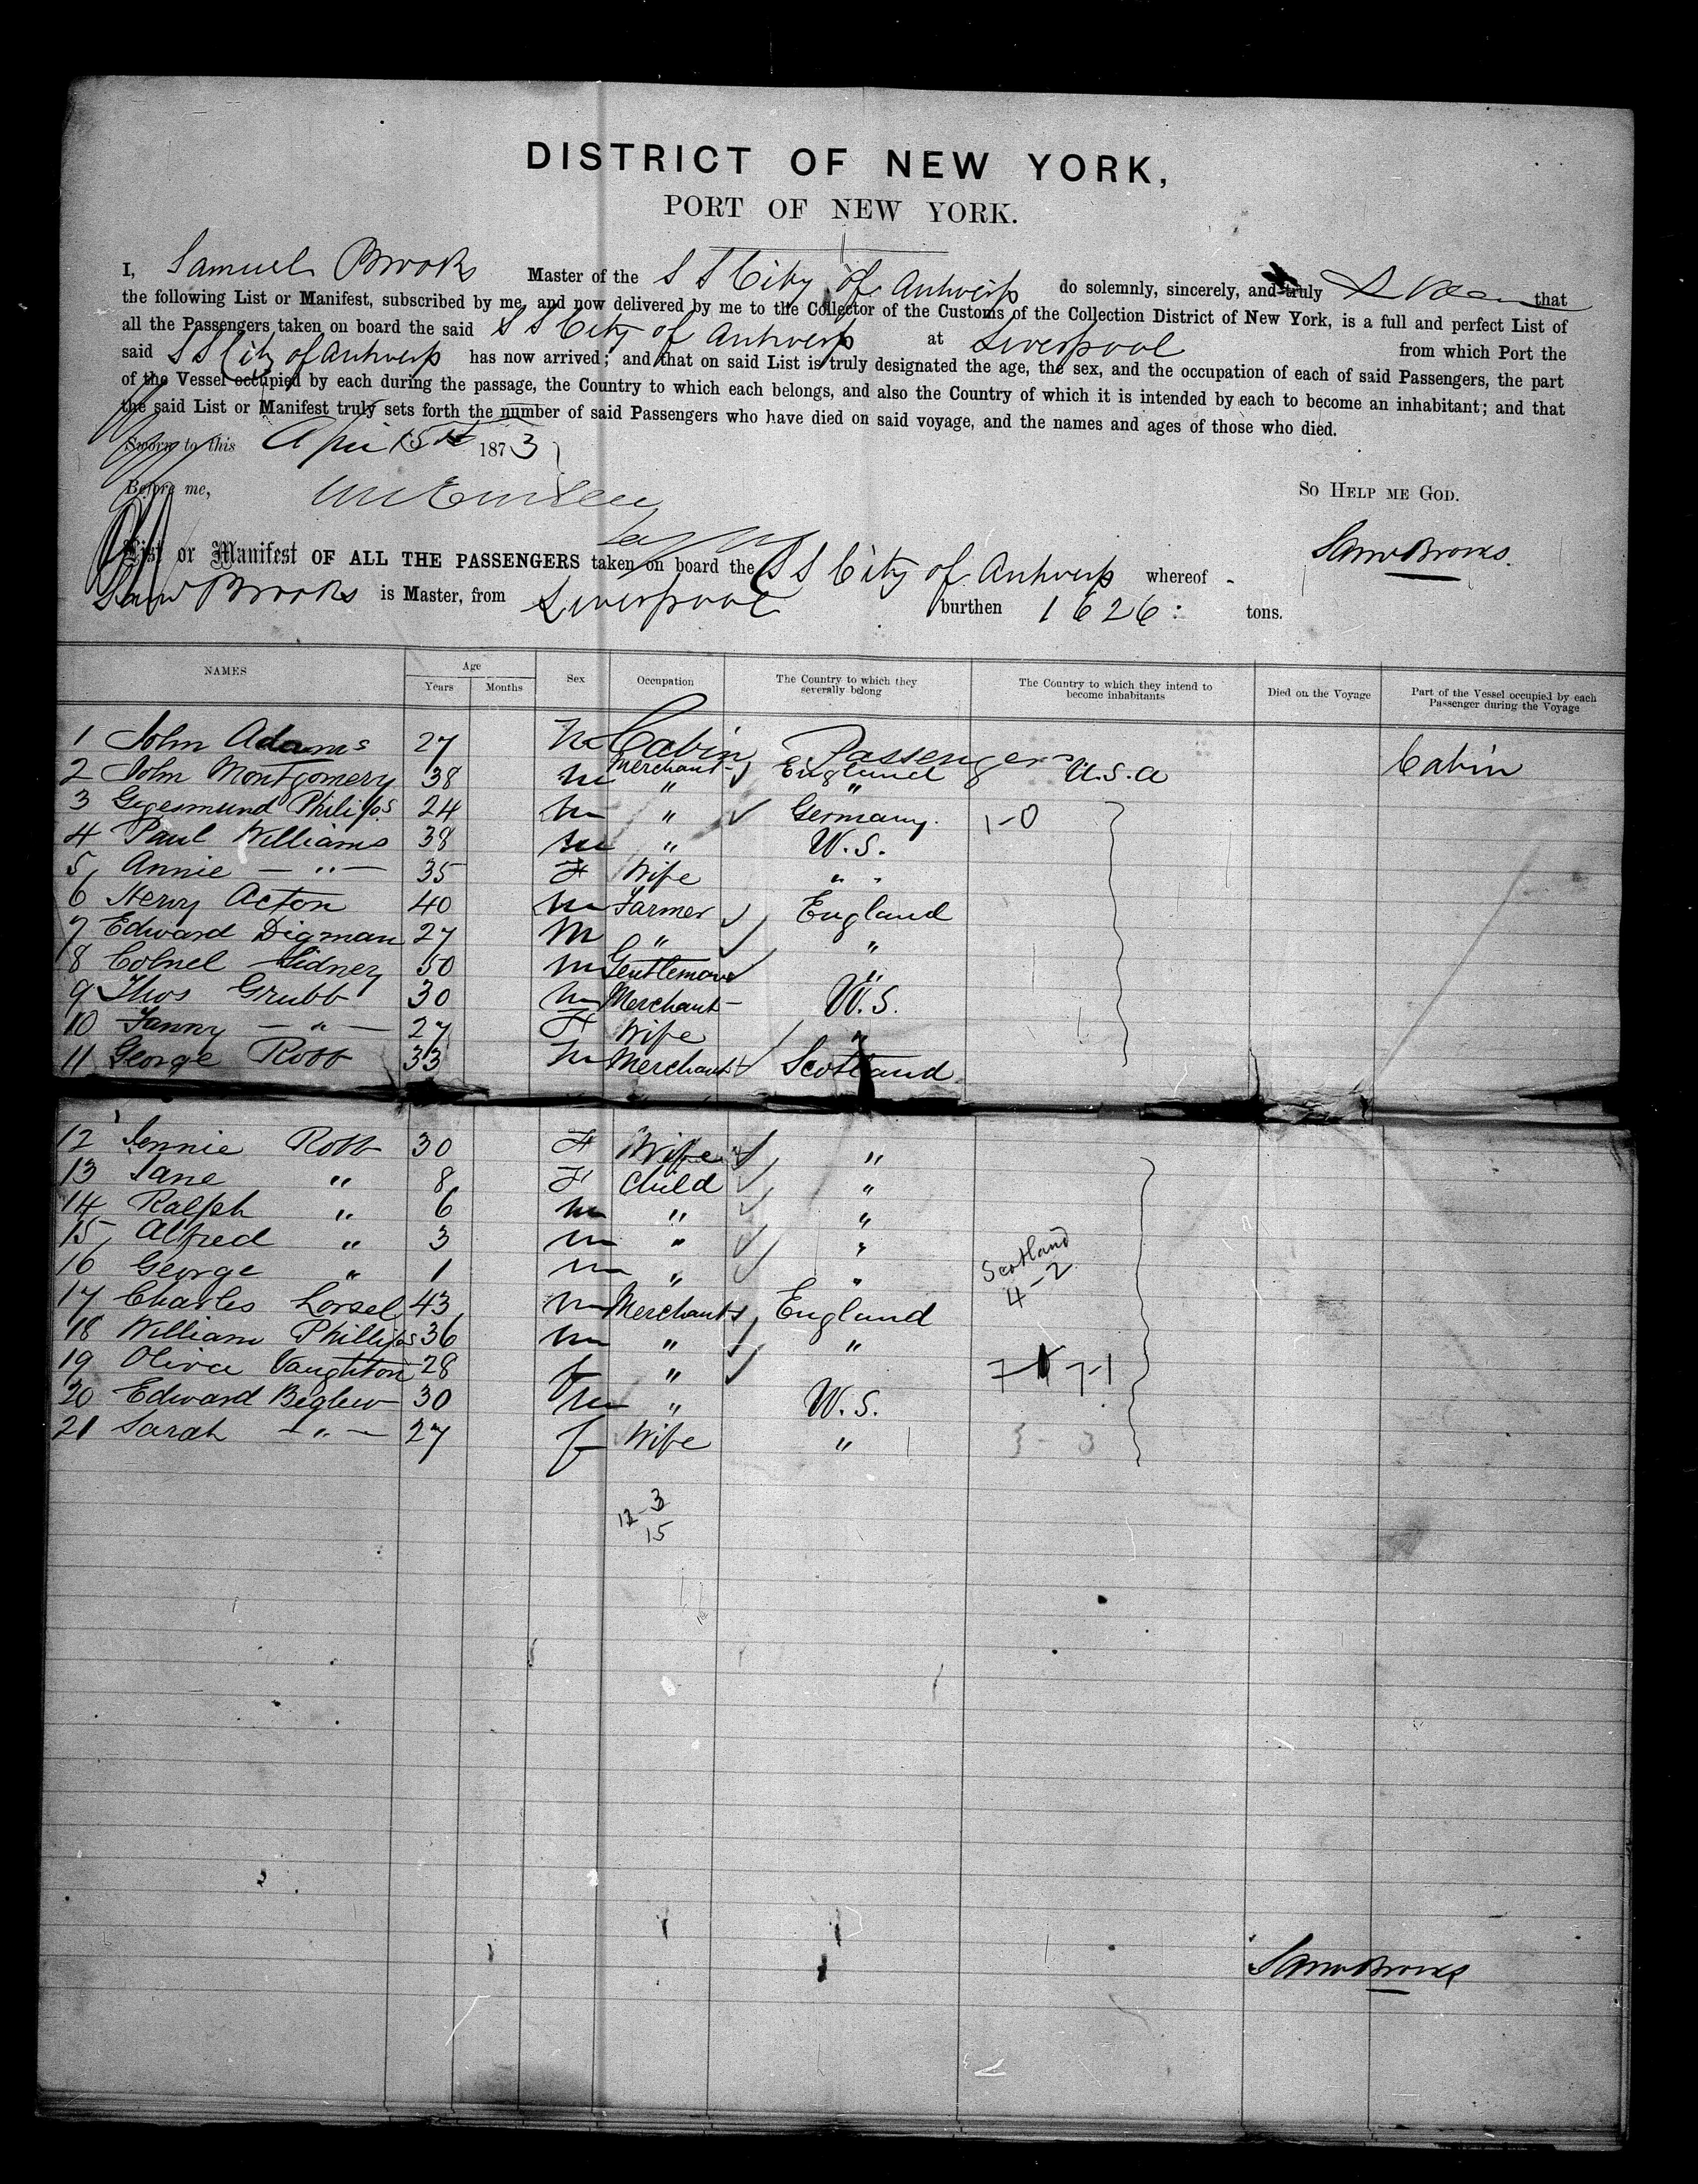 DISTRICT OF NEW YORK,
PORT OF NEW YORK.
I, Samuel Brooks Master of the S S City of Antwerp do solemnly, sincerely, and truly Swear that
the following List or Manifest, subscribed by me, and now delivered by me to the Collector of the Customs of the Collection District of New York, is a full and perfect List of
all the Passengers taken on board the said S S City of Antwerp at Liverpool from which Port the
said S S City of Antwerp has now arrived; and that on said List is truly designated the age, the sex, and the occupation of each of said Passengers, the part
of the Vessel occupied by each during the passage, the Country to which each belongs, and also the Country of which it is intended by each to become an inhabitant; and that
the said List or Manifest truly sets forth the number of said Passengers who have died on said voyage, and the names and ages of those who died.
Sworn to this April 5th 1873
Before me,
So Help me God.
Saml Brooks.
List or Manifest OF ALL THE PASSENGERS taken on board the S S City of Antwerp whereof
Saml Brooks is Master, from Liverpool burthen 1626 : tons.
NAMES Age Years Months Sex Occupation The Country to which they severally belong The Country to which they intend to become inhabitants Died on the Voyage Part of the Vessel occupied by each Passenger during the Voyage
Cabin Passengers
1 John Adams 27 M Merchant England U.S.A Cabin
2 John Montgomery 38 m " "
3 Gigesmund Philips 24 m " Germany. 1-0
4 Paul Williams 38 m " U.S.
5 Annie — " — 35 F Wife " "
6 Henry Acton 40 m Farmer England
7 Edward Digman 27 M " "
8 Colnel Sidney 50 m Gentleman "
9 Thos Grubb 30 m Merchant U.S.
10 Fanny — " — 27 F Wife "
11 George Robb 33 m Merchant Scotland
12 Jennie Robb 30 F Wife "
13 Jane " 8 F Child "
14 Ralph " 6 m " "
15 Alfred " 3 m " "
16 George " 1 m " "
Scotland
4-2
17 Charles Lorsel 43 m Merchant England
18 William Phillips 36 m " "
19 Oliver Vaughton 28 f " " 7-1
20 Edward Beglew 30 m " U.S.
21 Sarah — " — 27 f Wife " 3-3
12-3
15
Saml Brooks